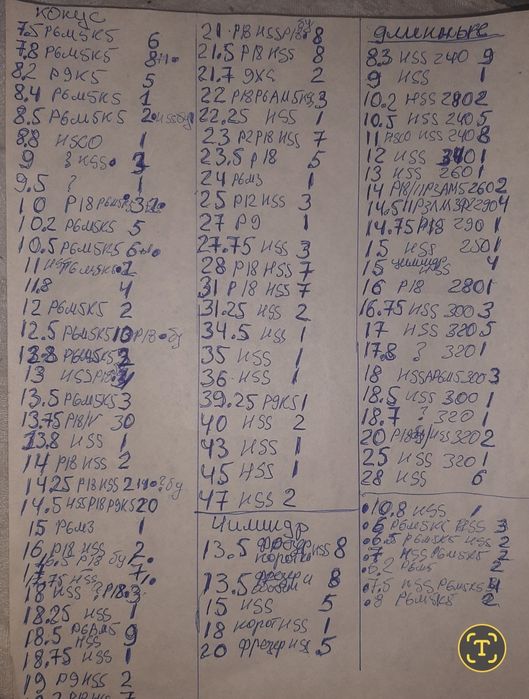 конус
7.5 Р6М5К5 6
7.8 Р6М5К5 8
8.2 Р9К5 5
8.4 Р6М5К5 1
8.5 Р6М5К5 2 HSS бу
8.8 HSCO 1
9 ? HSS 3
9.5 ? 1
10 Р18 3
10.2 Р6М5К5 5
10.5 Р6М5К5 6
11 Р6М5К5 2
11.8 4
12 Р6М5К5 2
12.5 Р6М5К5 13 Р18 бу
12.8 Р6М5К5 2
13 HSS Р18
13.5 Р6М5К5 3
13.75 Р18 30
13.8 HSS 1
14 Р18 HSS 2
14.25 Р18 HSS бу
14.5 HSS Р18 Р9К5 20
15 Р6М3 1
16 Р18 HSS 2
16.5 Р18 бу
17.75 HSS
18 HSS ? Р18 3
18.25 HSS 1
18.5 Р6АМ5 HSS 9
18.75 HSS 1
19 Р9 HSS 2
21 Р18 HSS Р18 бу 8
21.5 Р18 HSS 8
21.7 9ХС 2
22 Р18 Р6АМ5 3
22.25 HSS 1
23 Р2 Р18 HSS 7
23.5 Р18 5
24 Р6М3 1
25 Р12 HSS 3
27 Р9 1
27.75 HSS 3
28 Р18 HSS 7
31 Р18 HSS 7
31.25 HSS 2
34.5 HSS 1
35 HSS 1
36 HSS 1
39.25 Р9К5 1
40 HSS 2
43 HSS 1
45 HSS 1
47 HSS 2
Цилиндр
13.5 фрезер коротк HSS 8
13.5 фрезер 8
15 HSS 5
18 корот HSS 1
20 фрезер HSS 5
длинные
8.3 HSS 240 9
9 HSS 1
10.2 HSS 280 2
10.5 HSS 240 5
11 HSCO HSS 240 8
12 HSS 1
13 HSS 260 1
14 260 2
14.5 290 4
14.75 Р18 290 1
15 HSS 250 1
15 цилиндр HSS 4
16 Р18 280 1
16.75 HSS 300 3
17 HSS 320 5
17.8 ? 320 1
18 HSS АР6М5 300 3
18.5 HSS 300 1
18.7 ? 320 1
20 Р18 бу HSS 320 2
25 HSS 320 1
28 HSS 6
10.8 HSS 1
6 Р6М5К5 3
6.5 Р6М5К5 HSS 2
7 HSS Р6М5К5 2
6.2 Р6М5 2
7.5 HSS Р6М5К5
8 Р6М5К5 2